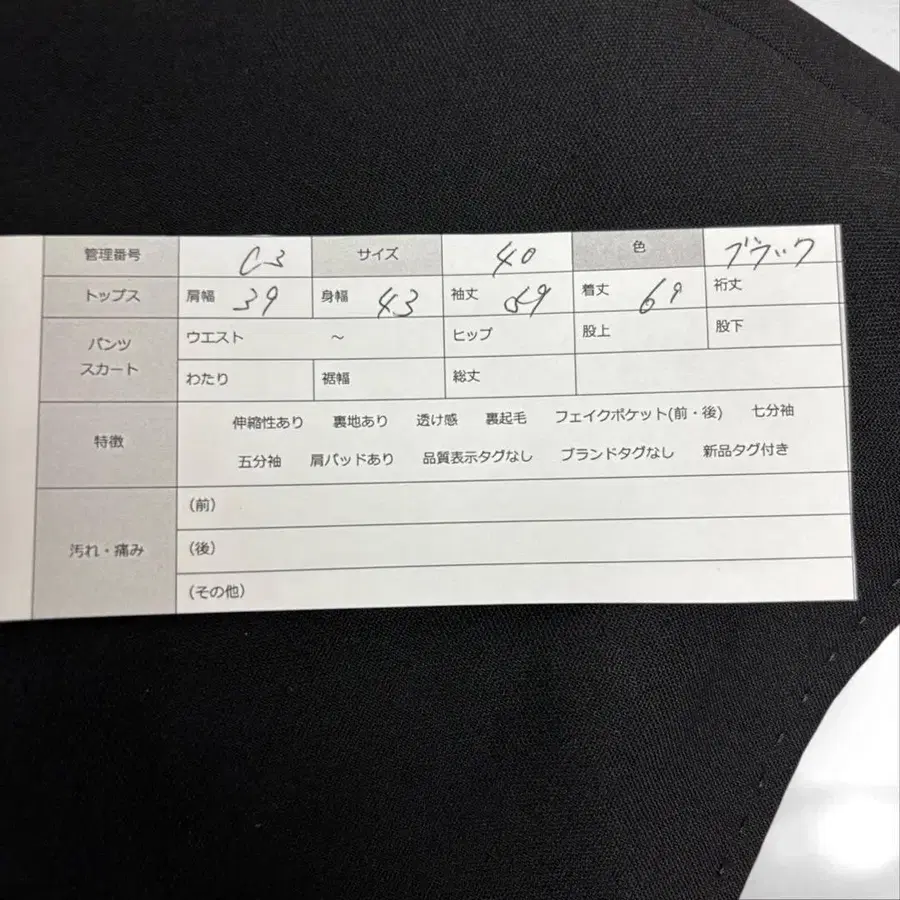 管理番号 C3 サイズ 40 色 ブラック
トップス 肩幅 39 身幅 43 袖丈 59 着丈 69 裄丈
パンツ スカート ウエスト ～ ヒップ 股上 股下
わたり 裾幅 総丈
特徴 伸縮性あり 裏地あり 透け感 裏起毛 フェイクポケット(前・後) 七分袖
五分袖 肩パッドあり 品質表示タグなし ブランドタグなし 新品タグ付き
汚れ・痛み (前)
(後)
(その他)